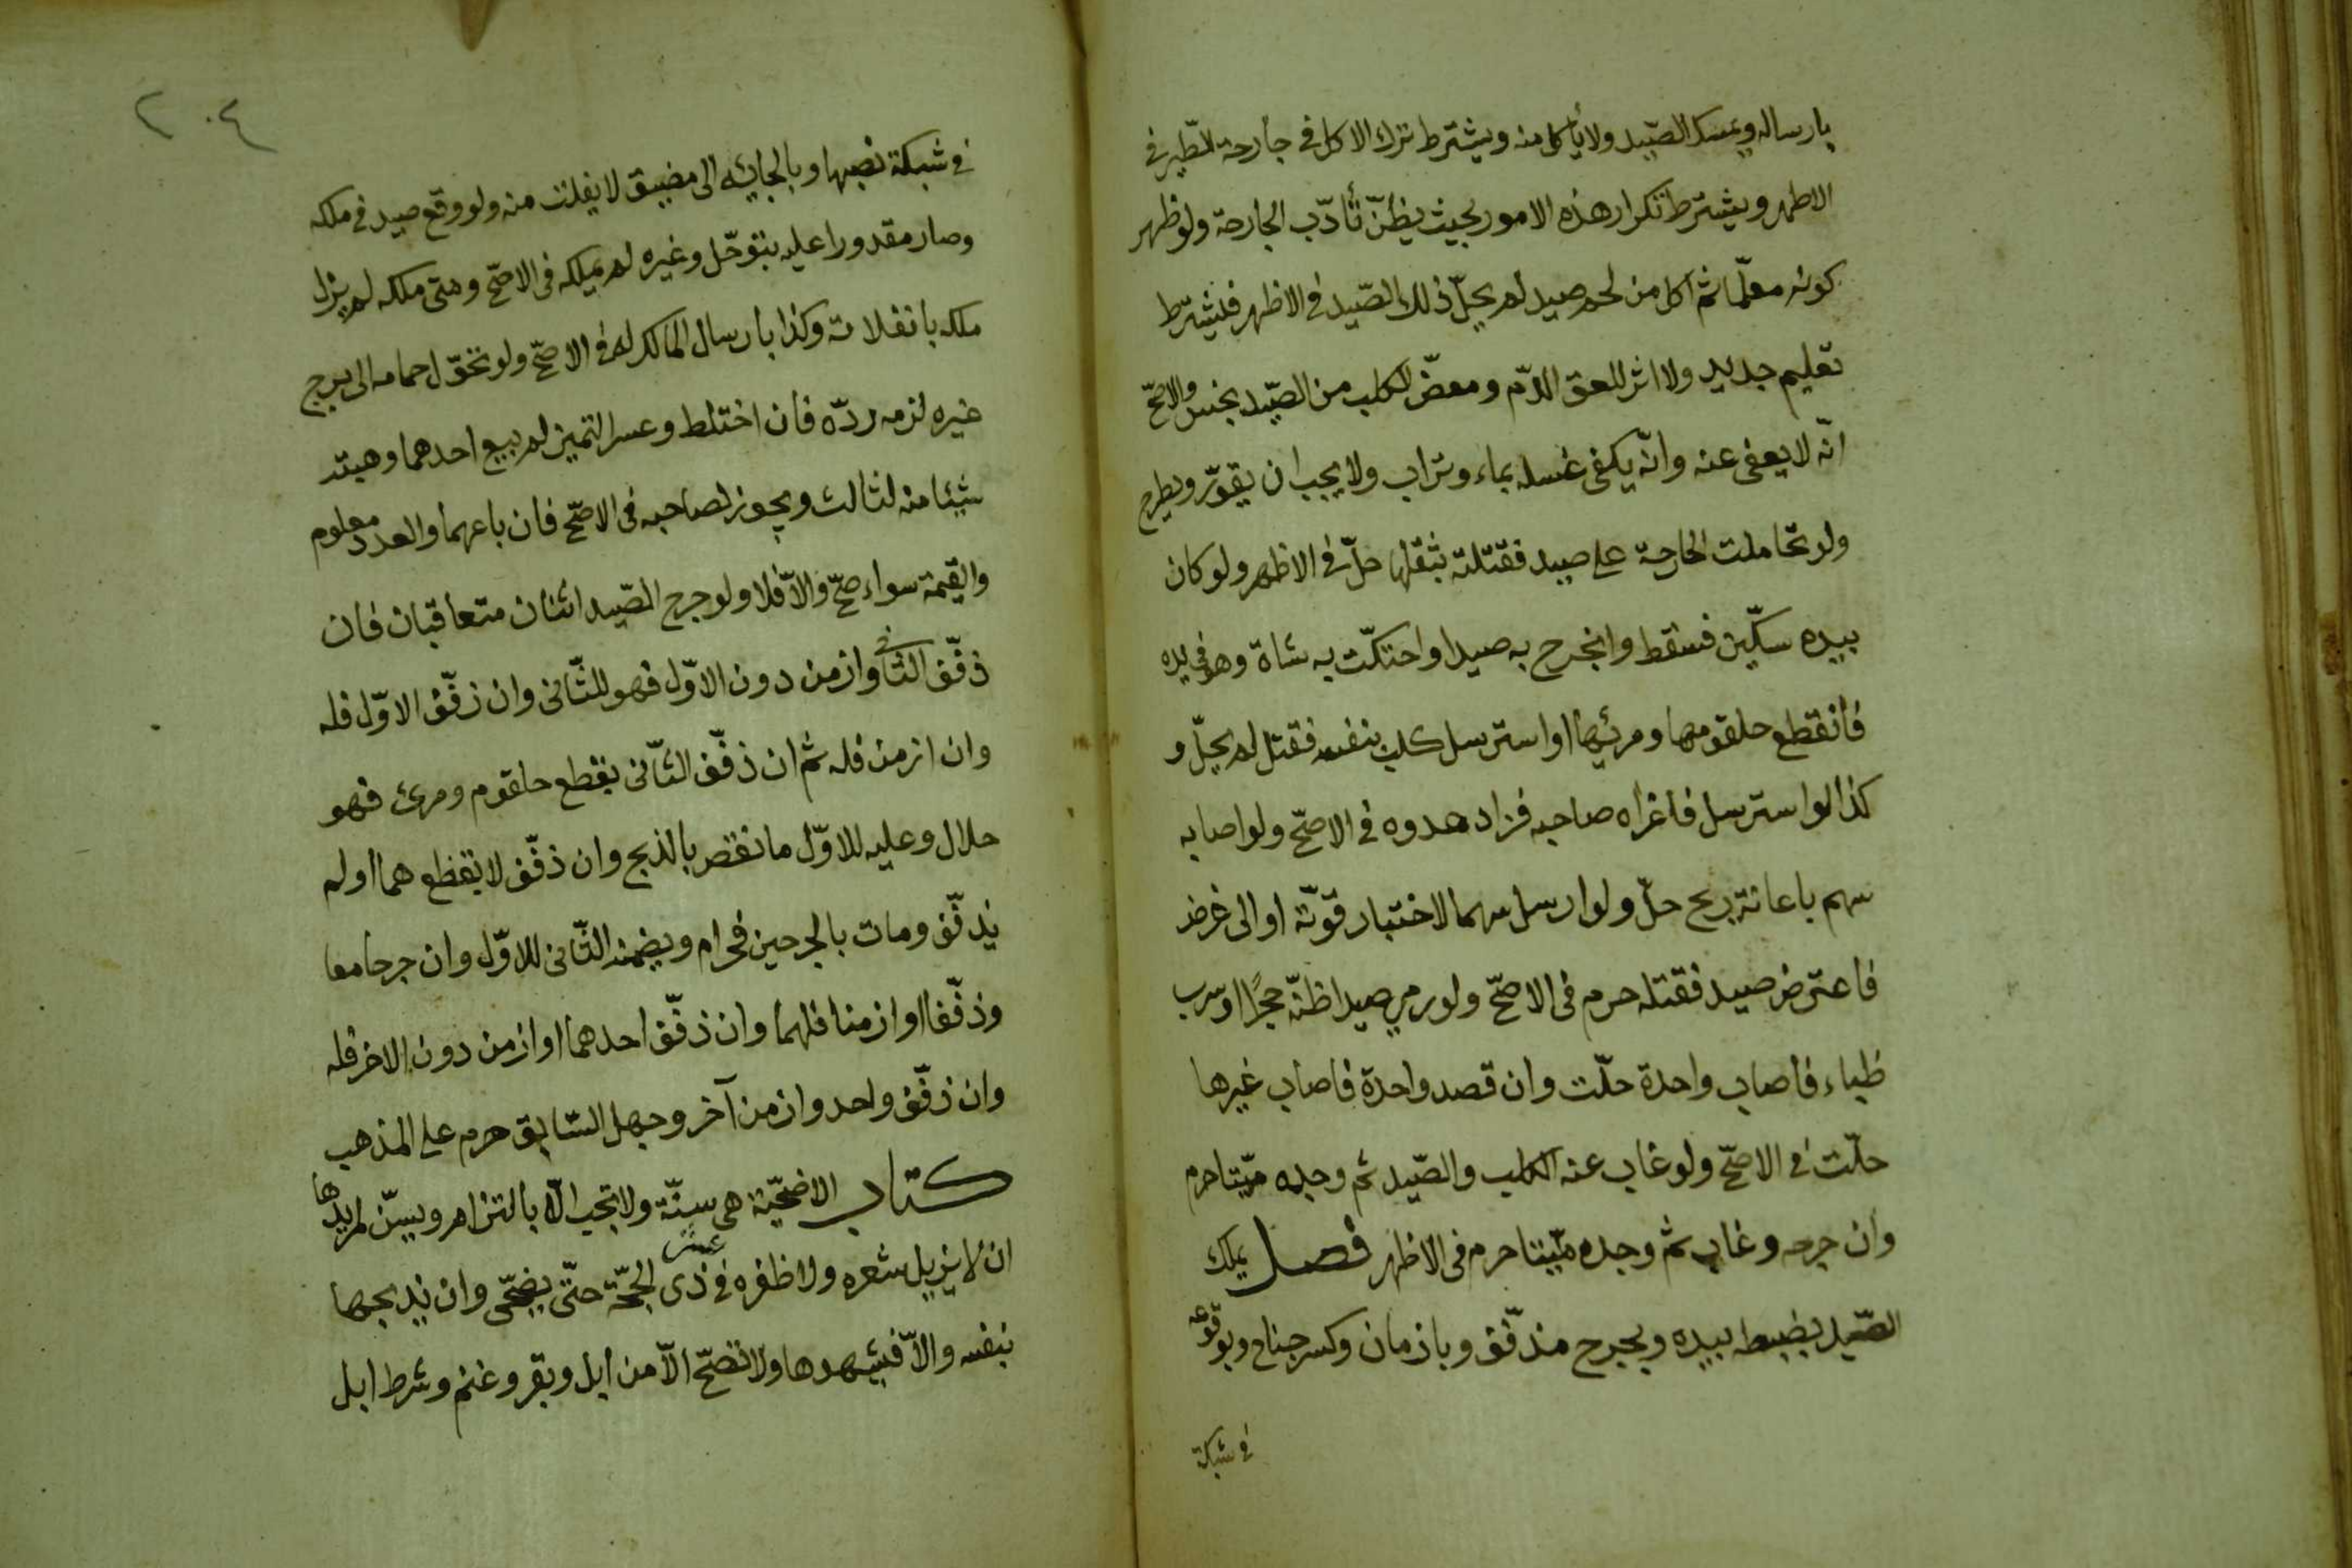 بارساله ويمسك الصّيد ولا يأكل منه ويشترط ترك الاكل في جارحة الطّير في
الاظهر ويشترط تكرار هذه الامور بحيث يظنّ تأدّب الجارحة ولو ظهر
كونه معلّما ثم اكل من لحم صيد لم يحلّ ذلك الصّيد في الاظهر فيشترط
تعليم جديد ولا اثر للعق الدّم ومعضّ الكلب من الصّيد نجس والاصحّ
انّه لا يعفى عنه وانّه يكفى غسله بماء وتراب ولا يجب ان يقوّر ويطرح
ولو تحاملت الجارحة على صيد فقتلته بثقلها حلّ في الاظهر ولو كان
بيده سكّين فسقط وانجرح به صيد او احتكّت به شاة وهو في يده
فانقطع حلقومها ومريئها او استرسل كلب بنفسه فقتل لم يحلّ و
كذا لو استرسل فاغراه صاحبه فزاد عدوه في الاصحّ ولو اصابه
سهم باعانة ريح حلّ ولو ارسل سهما لاختبار قوّته او الى غرض
فاعترض صيد فقتله حرم فى الاصحّ ولو رمي صيدا ظنّه حجرًا او سرب
ظباء فاصاب واحدة حلّت وان قصد واحدة فاصاب غيرها
حلّت في الاصحّ ولو غاب عنه الكلب والصّيد ثم وجده ميّتا حرم
وان جرحه وغاب ثم وجده ميّتا حرم فى الاظهر فصل يملك
الصّيد بضبطه بيده وبجرح مذفّف وبازمان وكسر جناح وبوقوعه
في شبكة
٢٠٤
في شبكة نصبها وبالجائه الى مضيق لا يفلت منه ولو وقع صيد في ملكه
وصار مقدورا عليه بتوحّل وغيره لم يملكه فى الاصحّ ومتى ملكه لم يزل
ملكه بانفلاته وكذا بارسال المالك له فى الاصحّ ولو تحوّل حمامه الى برج
غيره لزمه ردّه فان اختلط وعسر التميز لم يبع احدهما وهبته
شيئا منه لثالث ويجوز لصاحبه فى الاصحّ فان باعهما والعدد معلوم
والقيمة سواء صحّ والاّ فلا ولو جرح الصّيد اثنان متعاقبان فان
ذفّف الثاني وازمن دون الاوّل فهو للثّانى وان ذفّف الاوّل فله
وان ازمن فله ثم ان ذفّف الثّانى بقطع حلقوم ومرئ فهو
حلال وعليه للاوّل ما نقص بالذبح وان ذفّف لا بقطعهما او لم
يذفّف ومات بالجرحين فحرام ويضمنه الثّانى للاوّل وان جرحا معا
وذفّفا او ازمنا فلهما وان ذفّف احدهما او ازمن دون الاخر فله
وان ذفّف واحد وازمن آخر وجهل السّابق حرم على المذهب
كتاب الاضحيّة هى سنّة ولا تجب الاّ بالتزام ويسنّ لمريدها
ان لا يزيل شعره ولا ظفره في عشر ذى الحجّة حتّى يضحّى وان يذبحها
بنفسه والاّ فيشهدها ولا تصحّ الاّ من ابل وبقر وغنم وشرط ابل